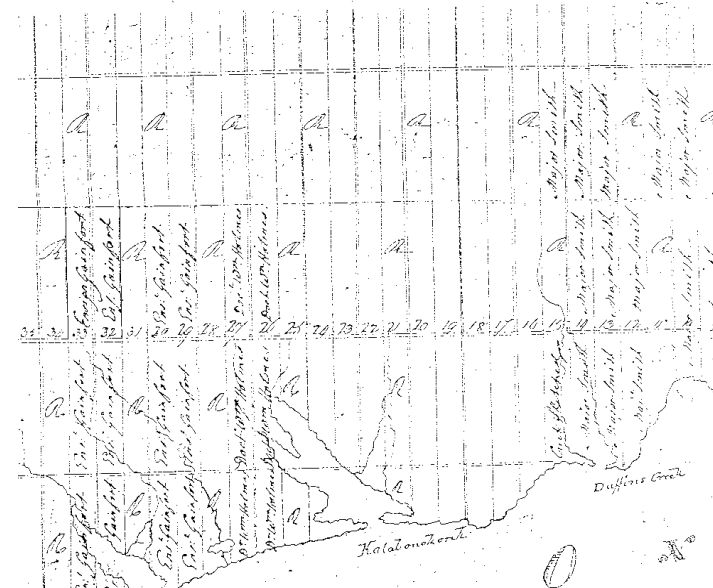 R R R R R Major Smith R
Major Smith
Major Smith
Major Smith
R
Major Smith
Major Smith
R
R
Ens. Gainfort
R
Ens. Gainfort
Ens. Gainfort
R
Docr. Wm Holmes
Doctr. Wm Holmes
R
R
R
Major Smith
Major Smith
Major Smith
R
Major Smith
35 34 33 32 31 30 29 28 27 26 25 24 23 22 21 20 19 18 17 16 15 14 13 12 11 10
R
Ens. Gainfort
Ens. Gainfort
R
Ens. Gainfort
Ens. Gainfort
R
Doct. Wm Holmes
R
R
Major Smith
Major Smith
Major Smith
R
Ens. Gainfort
Gainfort
R
Ens. Gainfort
Ens. Gainfort
R
Dr. Wm Holmes
Dr. Wm Holmes
R
R
Duffins Creek
N